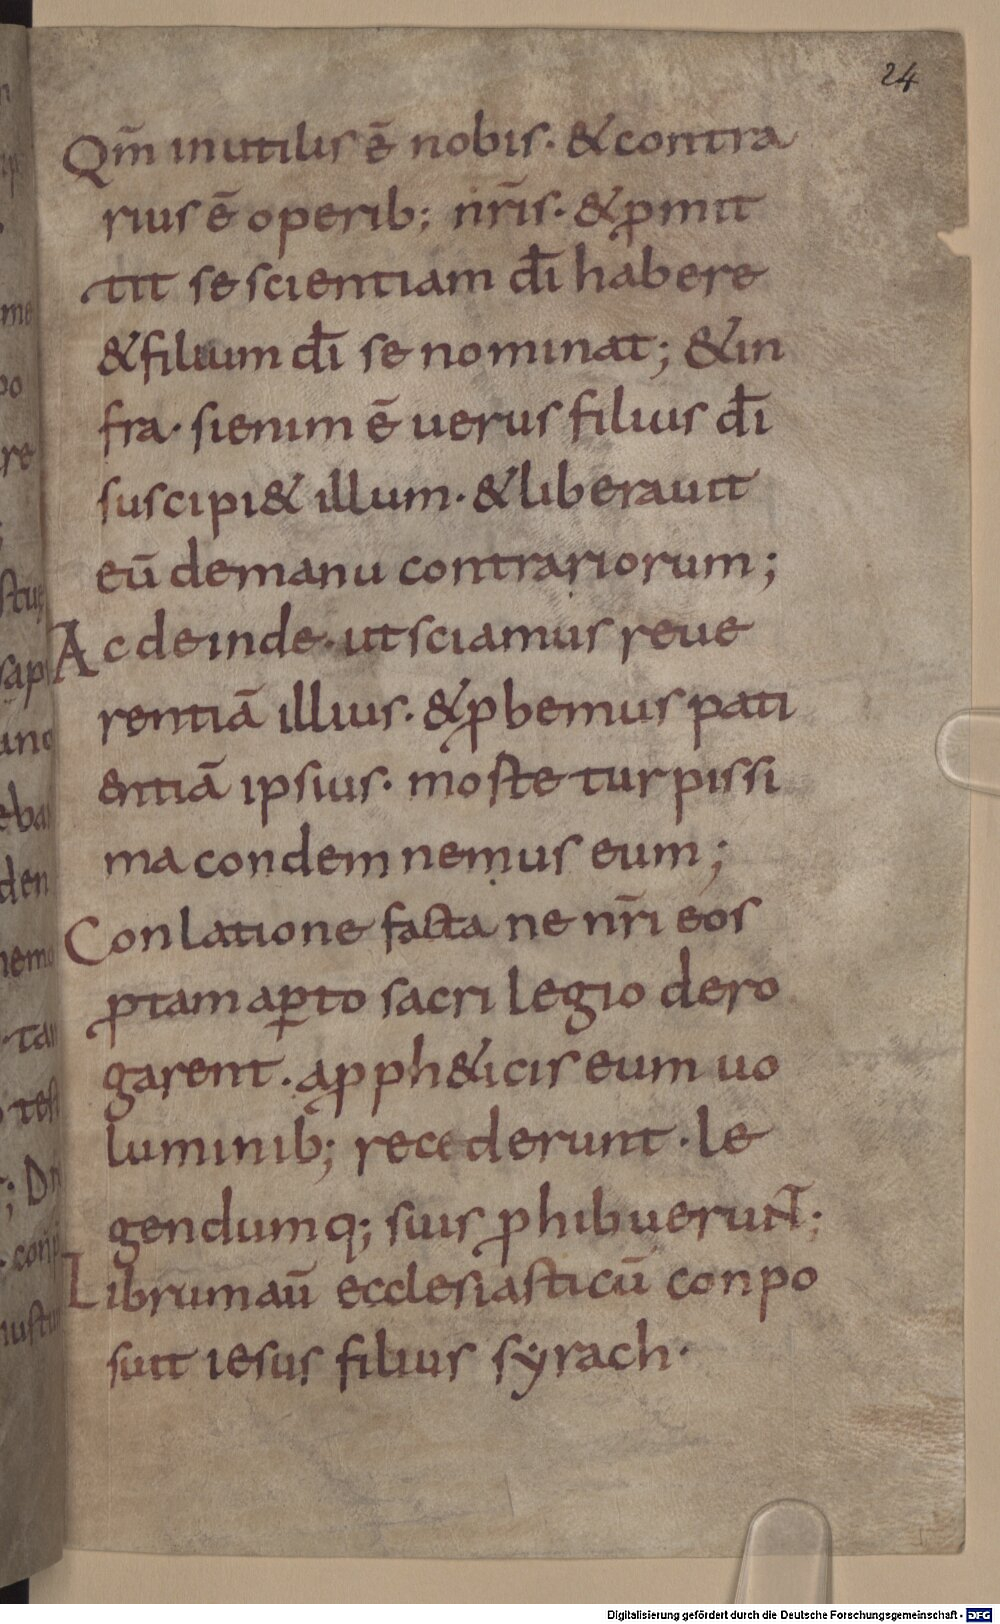 24
Qm̄ inutilis ē nobis· & contra
rius ē operib; nr̄is· & ꝓmit
tit se scientiam dī habere
& filium dī se nominat; & in
fra· si enim ē uerus filius dī
suscipi& illum· & liberauit
eū de manu contrariorum;
Ac deinde· ut sciamus reue
rentiā illius· & ꝓbemus pati
entiā ipsius· moste turpissi
ma condemnemus eum;
Conlatione facta ne nr̄i eos
ꝓ tam aꝑto sacrilegio dero
garent· a ꝓph&icis eum uo
luminib; recederunt· le
gendumq; suis ꝓhibuerunt̄;
Librum aū ecclesiasticū conpo
suit iesus filius sẏrach·
Digitalisierung gefördert durch die Deutsche Forschungsgemeinschaft - DFG